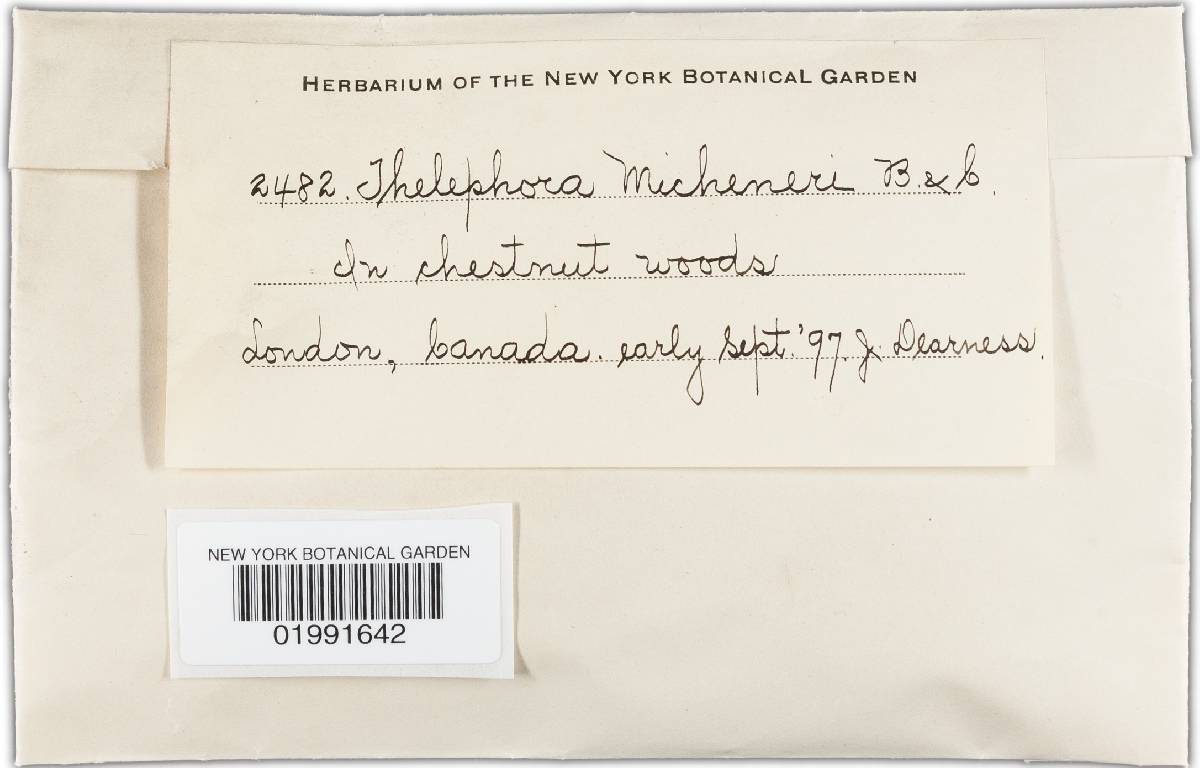 HERBARIUM OF THE NEW YORK BOTANICAL GARDEN
2482. Thelephora Micheneri B. & C.
In chestnut woods
London, Canada. early Sept. '97. J. Dearness.
NEW YORK BOTANICAL GARDEN
01991642